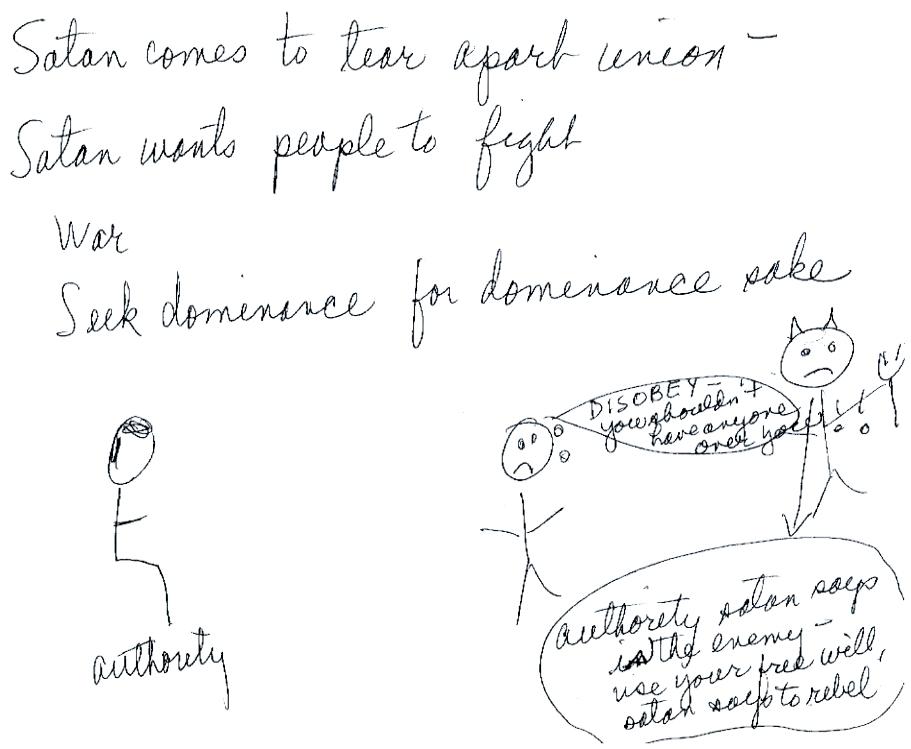 Satan comes to tear apart union –
Satan wants people to fight
War
Seek dominance for dominance sake
DISOBEY –
you shouldn't
have anyone
over you
authority
authority satan says
is the enemy –
use your free will,
satan says to rebel